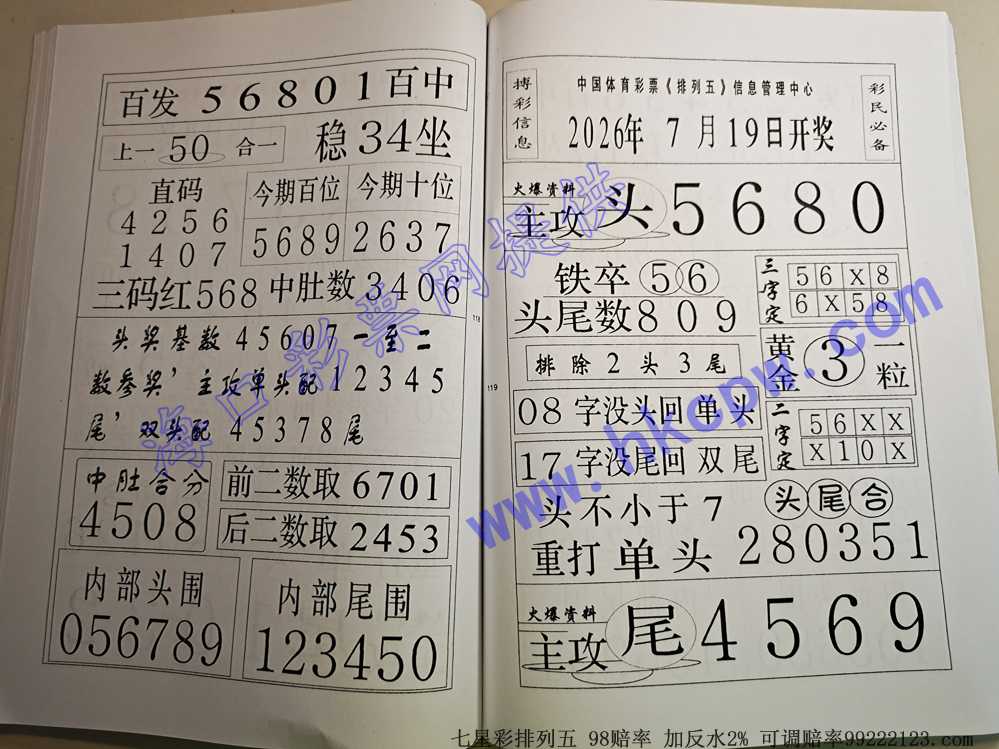 百发 56801 百中
上一 50 合一
稳 34 坐
直码
4256
1407
今期百位
5689
今期十位
2637
三码红 568 中肚数 3406
头奖基数 45607 一至二
数参奖’主攻单头配 12345
尾’双头配 45378 尾
中肚合分
4508
前二数取 6701
后二数取 2453
内部头围
056789
内部尾围
123450
118
119
搏彩信息
中国体育彩票《排列五》信息管理中心
2026年 7 月19日开奖
彩民必备
火爆资料
主攻 头 5680
铁卒 56
头尾数 809
三字定
56X8
6X58
排除 2 头 3 尾
黄金 3 一粒
08 字没头回单头
17 字没尾回双尾
二字定
56XX
X10X
头不小于 7
头尾合
重打单头 280351
火爆资料
主攻 尾 4569
海口彩票网提供
www.hkcpw.com
七星彩排列五 98赔率 加反水2% 可调赔率99222123.com